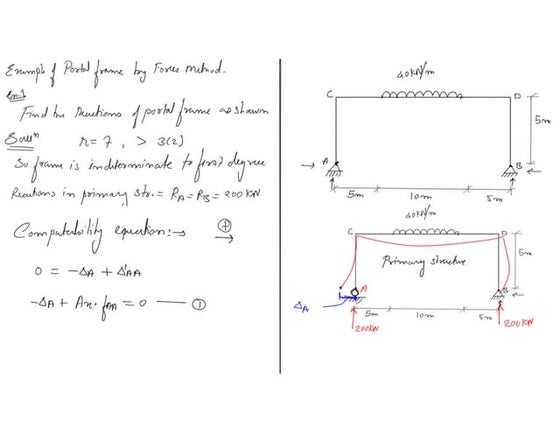 Example of Portal frame by Force Method.
Find the Reactions of portal frame as shown
Soluⁿ r = 7 , > 3(2)
So frame is indeterminate to first degree
Reactions in primary Str. = RA = RB = 200 KN
Compatability equation :→
+
→
0 = -ΔA + Δ'AA
-ΔA + Ax. fAA = 0 — ①
40kN/m
C
D
5m
A
B
5m
10m
5m
40kN/m
C
D
Primary structure
5m
A
B
ΔA
5m
10m
5m
200KN
200KN